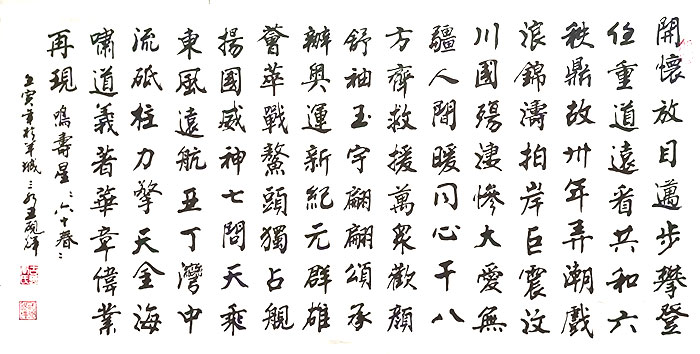 開懷放目邁步攀登
任重道遠看共和六
秩鼎故卅年弄潮戲
浪錦濤拍岸巨震汶
川國殤淒慘大愛無
疆人間暖同心干八
方齊救援萬眾歡顏
舒袖玉宇翩翩頌承
辦奧運新紀元群雄
薈華戰鰲頭獨占觀
揚國威神七問天乘
東風遠航亞丁灣中
流砥柱力擎天金海
嘯道義著華章偉業
再現 鳴壽星 六十春
壬寅年於羊城三水王